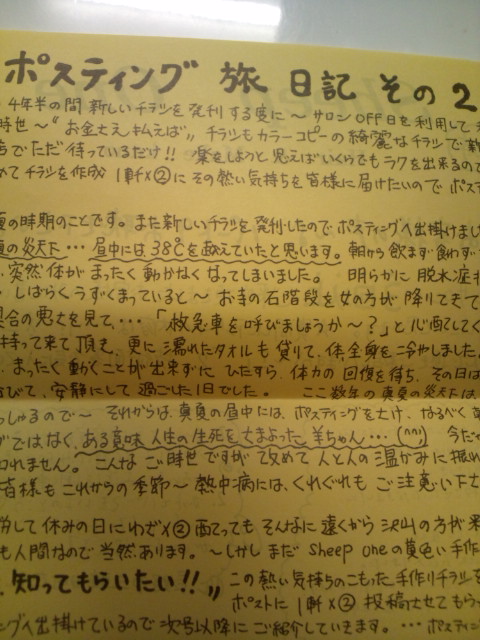 ポスティング 旅 日記 その 2
4年半の間 新しいチラシを発刊する度に～サロンOFF日を利用して
時世～“お金さえ払えば〟チラシもカラーコピーの綺麗なチラシで
でただ待っているだけ!! 楽をしようと思えばいくらでもラクを出来るので
めてチラシを作成 1軒×②にその熱い気持ちを皆様に届けたいので ポス
夏の時期のことです。また新しいチラシを発刊したので ポスティングへ出掛けまし
の炎天下… 昼中には38℃を越えていたと思います。朝から飲まず食わず
突然体がまったく動かなくなってしまいました。 明らかに脱水症
しばらくうずくまっていると～お寺の石階段を女の方が降りてきて
具合の悪さを見て…「救急車を呼びましょうか～?」と心配してく
持って来て頂き、更に濡れたタオルも借りて、体全身を冷やしました。
まったく動くことが出来ずに ひたすら、体力の回復を待ち、その日は
びて、安静にして過ごした1日でした。 ここ数年の真夏の炎天下は
っしゃるので～ それからは、真夏の昼中には、ポスティングをさけ、なるべく
ではなく、ある意味人生の生死をさまよった羊ちゃん…(^^;) 今だか
われません。こんなご時世ですが改めて人と人の温かみに触れ
皆様もこれからの季節～熱中病には、くれぐれもご注意下さ
労して休みの日にわざ×②配っても そんなに遠くから沢山の方が来
も人間なので当然あります。～しかしまだ sheep oneの黄色い手作
知ってもらいたい!!〟 この熱い気持ちのこもった手作りチラシを
ポストに1軒×② 投稿させてもらっ
ングへ出掛けているので次号以降にご紹介していきます。…ポスティン